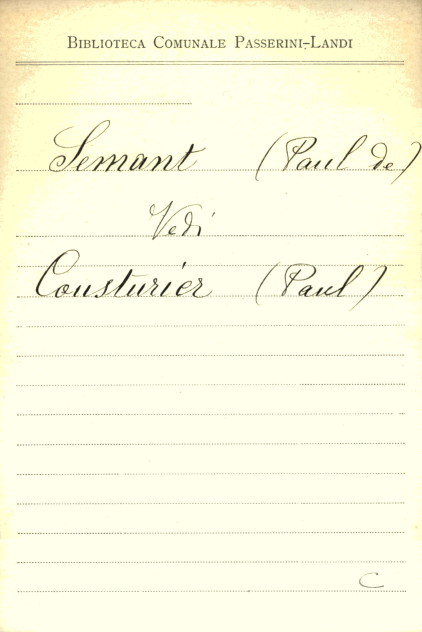 BIBLIOTECA COMUNALE PASSERINI-LANDI
Semant (Paul de)
Vedi
Cousturier (Paul)
C